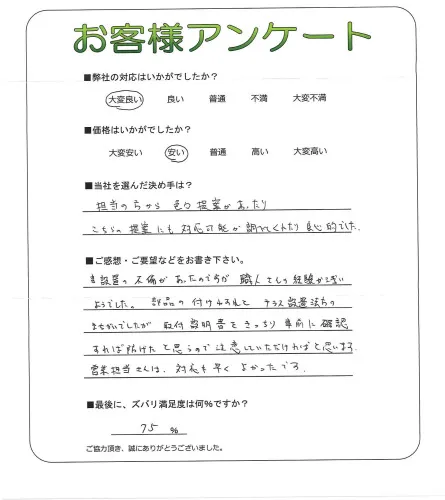 お客様アンケート
■弊社の対応はいかがでしたか？
大変良い 良い 普通 不満 大変不満
■価格はいかがでしたか？
大変安い 安い 普通 高い 大変高い
■当社を選んだ決め手は？
担当の方から 色々提案があったり
こちらの提案にも対応可能か調べてくれたり良心的でした。
■ご感想・ご要望などをお書き下さい。
設置の不備があったのですが 職人さんの経験が浅い
ようでした。部品の付け忘れと テラス設置法方の
まちがいでしたが 取付説明書をきっちり事前に確認
すれば防げたと思うので注意していただければと思います。
営業担当さんは、対応も早く よかったです。
■最後に、ズバリ満足度は何%ですか？
75 %
ご協力頂き、誠にありがとうございました。